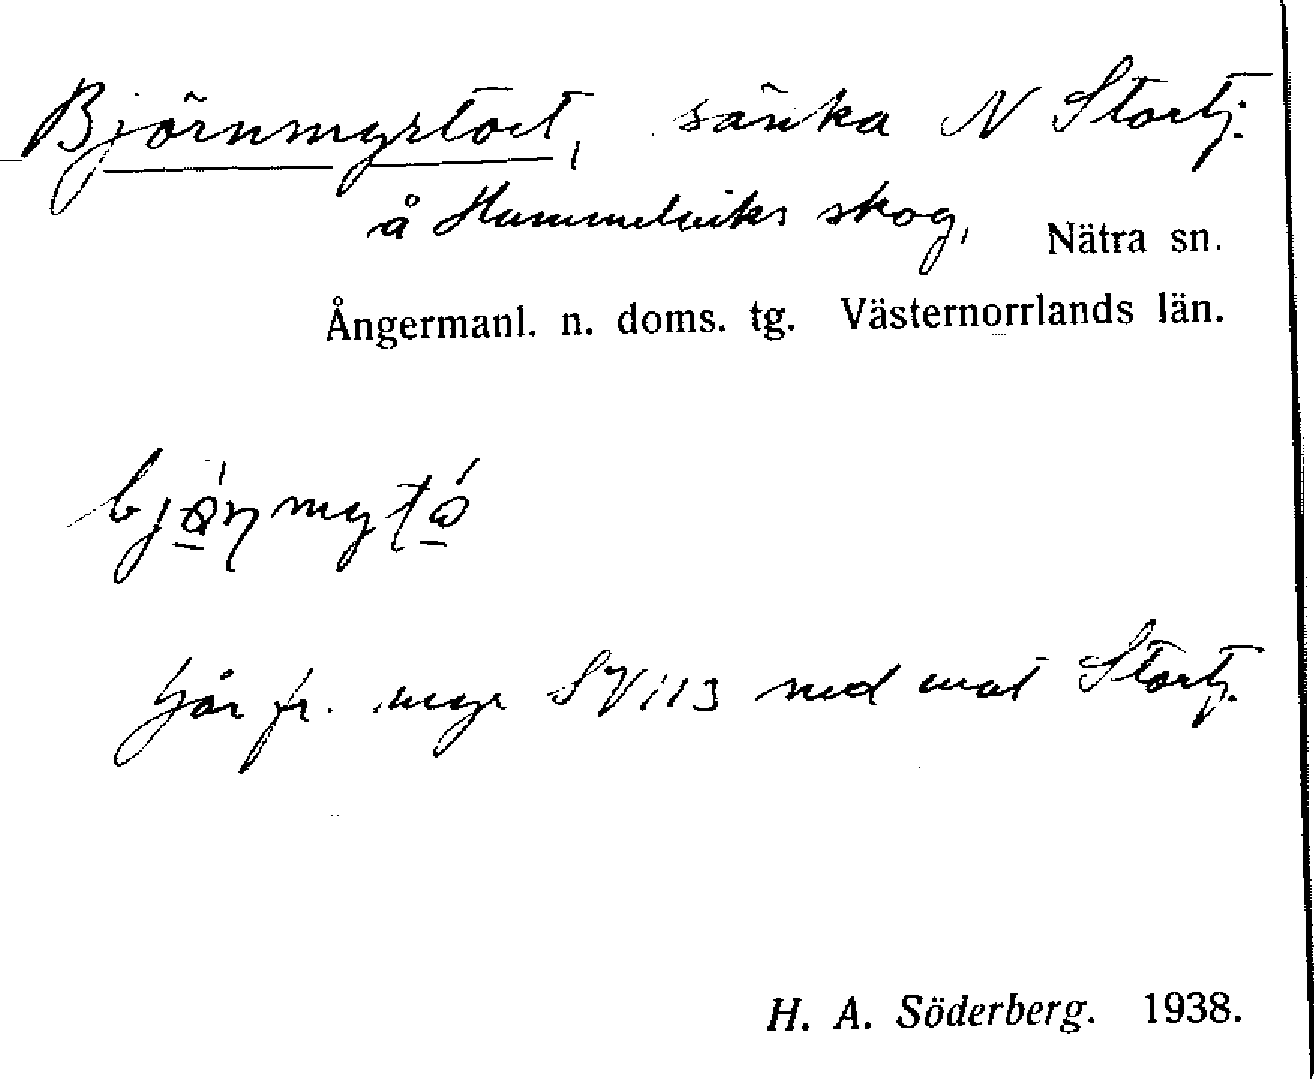 Björnmyrtået, sänka N Stortj.
å Hummelviks skog, Nätra sn.
Ångermanl. n. doms. tg. Västernorrlands län.
går fr. myr ned mot Stortj.
H. A. Söderberg. 1938.